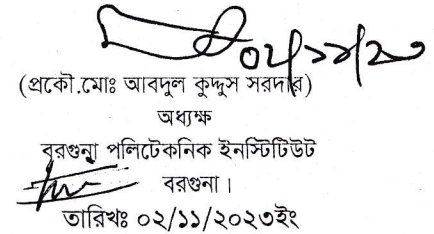 ০২/১১/২৩
(প্রকৌ.মোঃ আবদুল কুদ্দুস সরদার)
অধ্যক্ষ
বরগুনা পলিটেকনিক ইনস্টিটিউট
বরগুনা।
তারিখঃ ০২/১১/২০২৩ইং